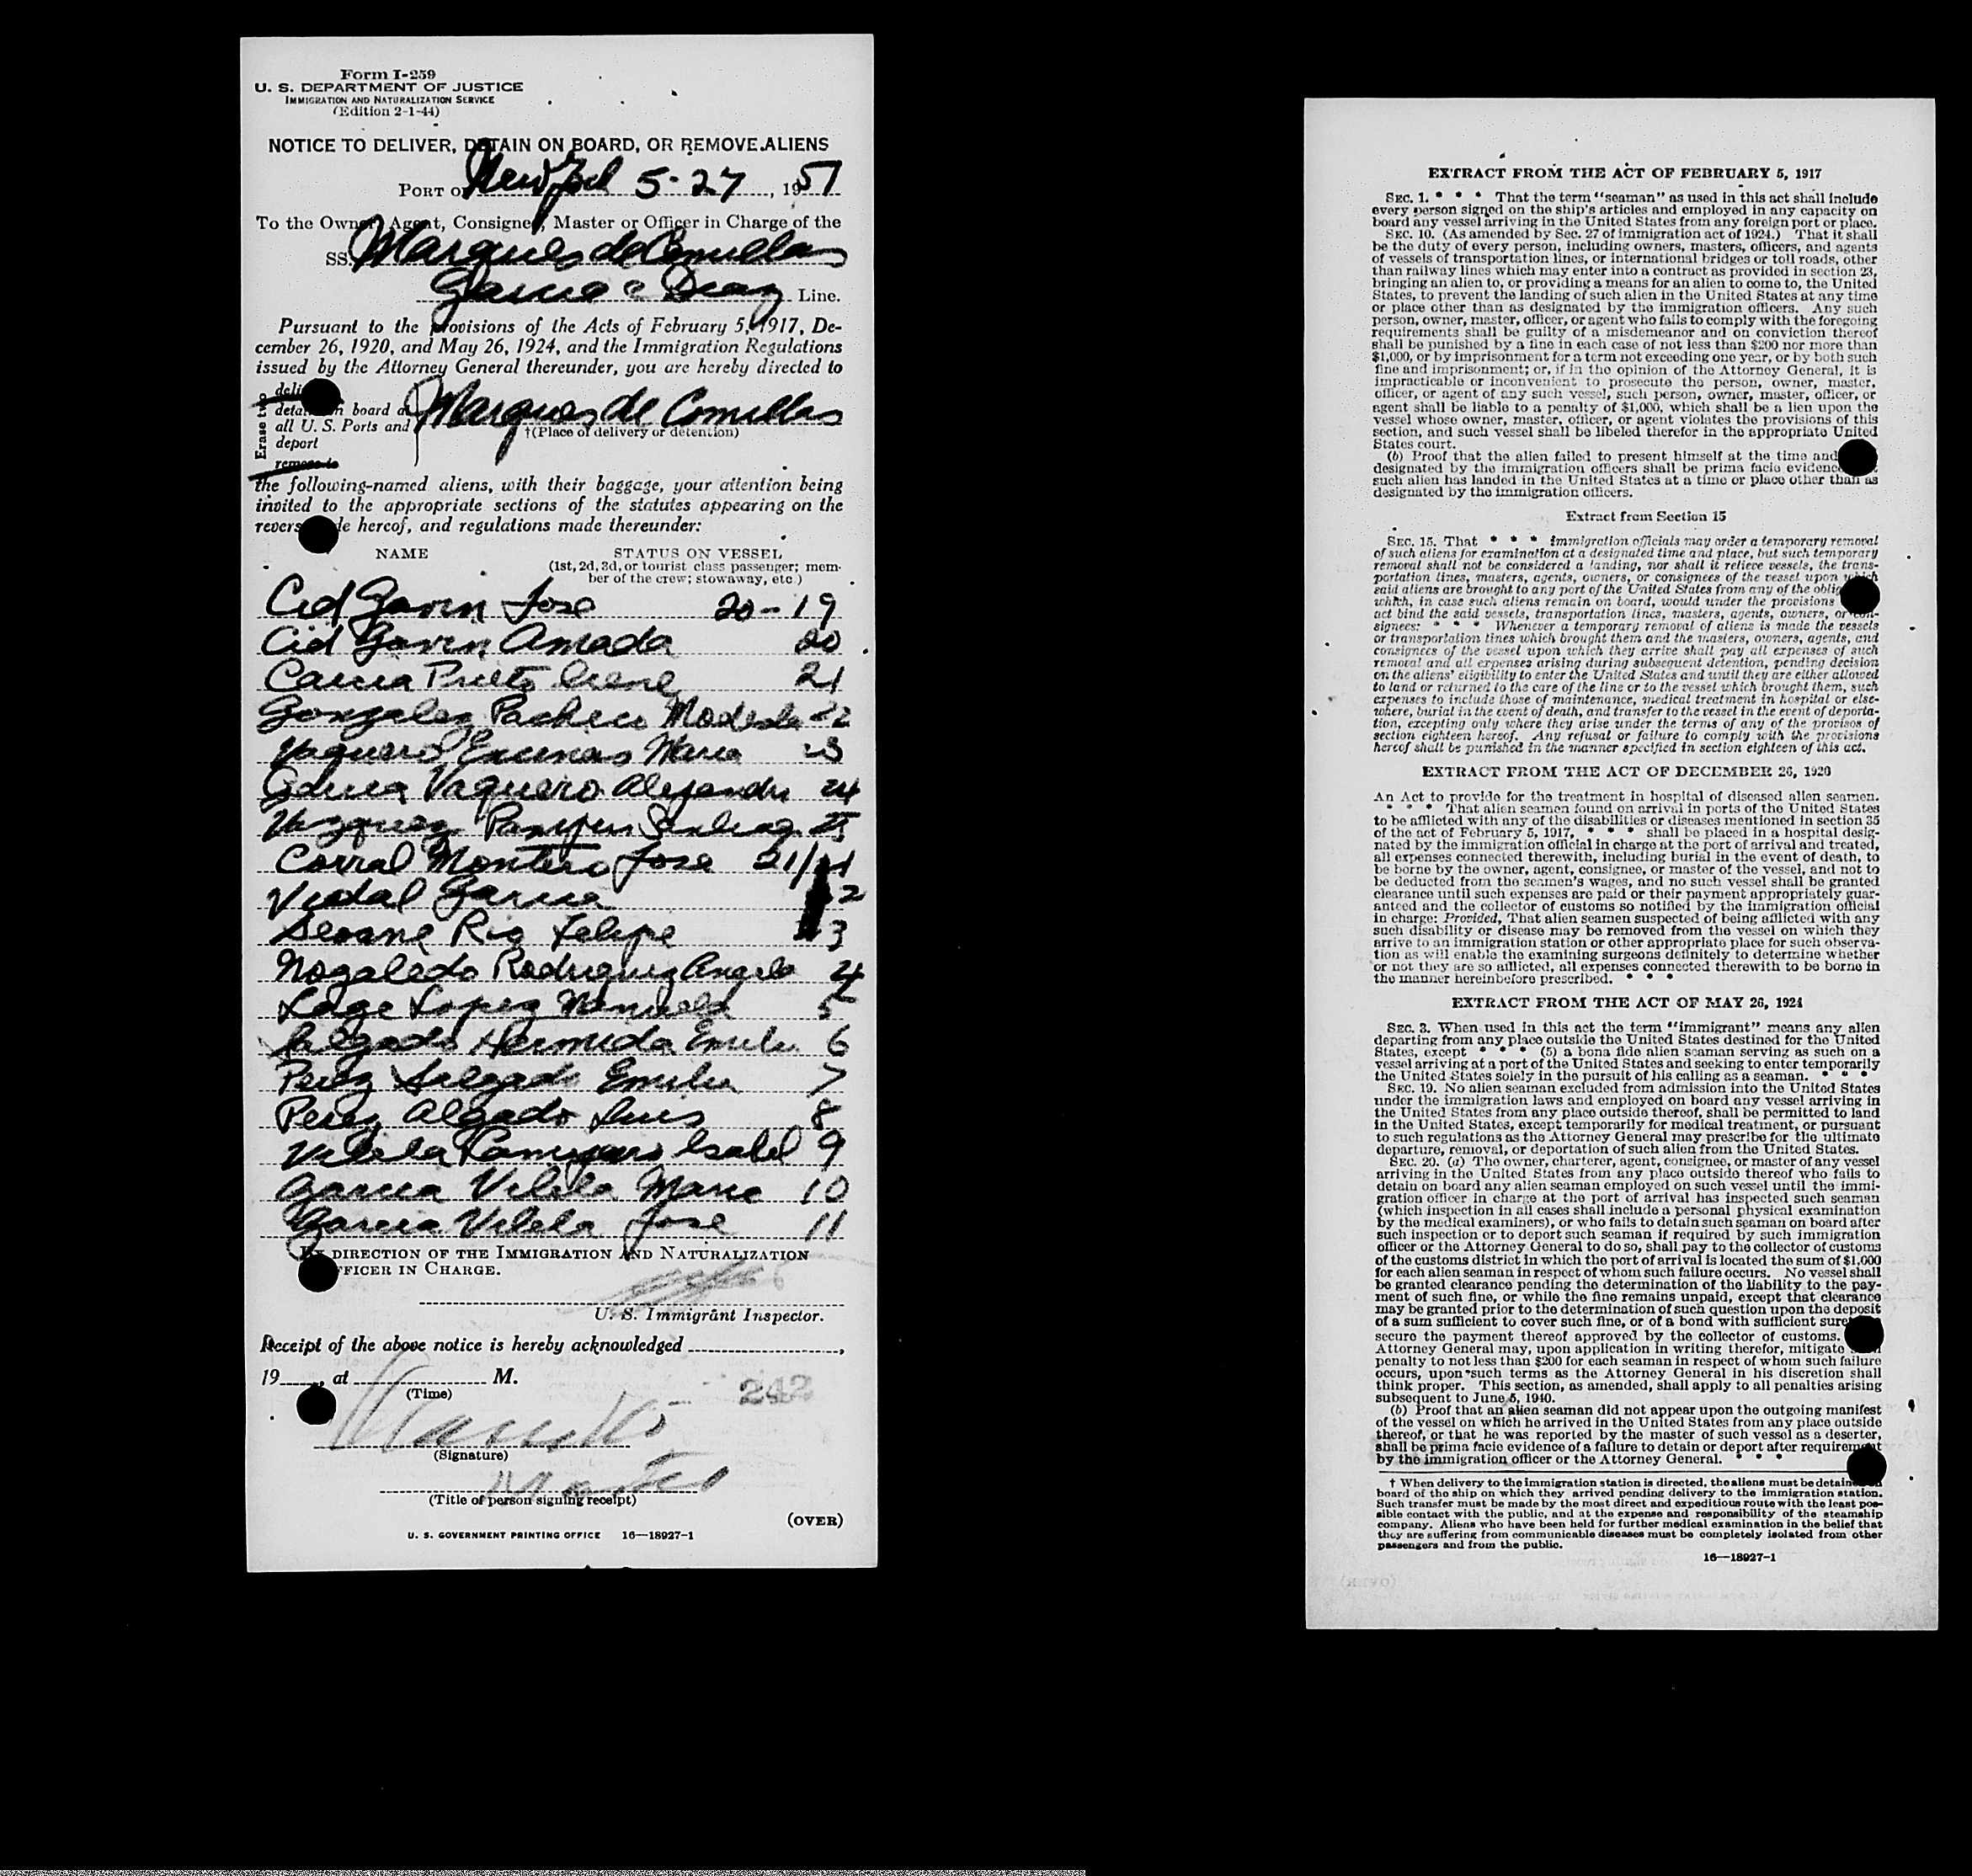 Form I-259
U. S. DEPARTMENT OF JUSTICE
IMMIGRATION AND NATURALIZATION SERVICE
(Edition 2-1-44)
NOTICE TO DELIVER, DETAIN ON BOARD, OR REMOVE ALIENS
PORT OF New York 5-27, 1951
To the Owner, Agent, Consignee, Master or Officer in Charge of the
SS Marques de Comillas
Garcia & Diaz Line.
Pursuant to the provisions of the Acts of February 5, 1917, De-
cember 26, 1920, and May 26, 1924, and the Immigration Regulations
issued by the Attorney General thereunder, you are hereby directed to
Erase two
deli
detain on board at Marques de Comillas
all U. S. Ports and
†(Place of delivery or detention)
deport
remove to
the following-named aliens, with their baggage, your attention being
invited to the appropriate sections of the statutes appearing on the
revers le hereof, and regulations made thereunder:
NAME STATUS ON VESSEL
(1st, 2d, 3d, or tourist class passenger; mem-
ber of the crew; stowaway, etc.)
Cid Gavin Jose 20-19
Cid Gavin Amada 20
Prieto Irene 21
Gonzalez Pacheco Modesta 22
Vaquero Encinas Maria 23
Garcia Vaquero Alejandro 24
Vazquez 25
Corral Montero Jose 21/
Vidal Garcia 2
Seoane Rio Felipe 3
Nogaledo Rodriguez Angela 4
Lage Lopez Manuela 5
Salgado Hermida Emilio 6
Perez Salgado Emilio 7
Perez Algado Luis 8
Vilela Isabel 9
Garcia Vilela Maria 10
Garcia Vilela Jose 11
BY DIRECTION OF THE IMMIGRATION AND NATURALIZATION
FFICER IN CHARGE.
U. S. Immigrant Inspector.
Receipt of the above notice is hereby acknowledged
19 , at M.
(Time)
242
(Signature)
(Title of person signing receipt)
(OVER)
U. S. GOVERNMENT PRINTING OFFICE 16—18927-1
EXTRACT FROM THE ACT OF FEBRUARY 5, 1917
SEC. 1. * * * That the term "seaman" as used in this act shall include
every person signed on the ship's articles and employed in any capacity on
board any vessel arriving in the United States from any foreign port or place.
SEC. 10. (As amended by Sec. 27 of immigration act of 1924.) That it shall
be the duty of every person, including owners, masters, officers, and agents
of vessels of transportation lines, or international bridges or toll roads, other
than railway lines which may enter into a contract as provided in section 23,
bringing an alien to, or providing a means for an alien to come to, the United
States, to prevent the landing of such alien in the United States at any time
or place other than as designated by the immigration officers. Any such
person, owner, master, officer, or agent who fails to comply with the foregoing
requirements shall be guilty of a misdemeanor and on conviction thereof
shall be punished by a fine in each case of not less than $200 nor more than
$1,000, or by imprisonment for a term not exceeding one year, or by both such
fine and imprisonment; or, if in the opinion of the Attorney General, it is
impracticable or inconvenient to prosecute the person, owner, master,
officer, or agent of any such vessel, such person, owner, master, officer, or
agent shall be liable to a penalty of $1,000, which shall be a lien upon the
vessel whose owner, master, officer, or agent violates the provisions of this
section, and such vessel shall be libeled therefor in the appropriate United
States court.
(b) Proof that the alien failed to present himself at the time and
designated by the immigration officers shall be prima facie evidence
such alien has landed in the United States at a time or place other than as
designated by the immigration officers.
Extract from Section 15
SEC. 15. That * * * immigration officials may order a temporary removal
of such aliens for examination at a designated time and place, but such temporary
removal shall not be considered a landing, nor shall it relieve vessels, the trans-
portation lines, masters, agents, owners, or consignees of the vessel upon which
said aliens are brought to any port of the United States from any of the oblig
which, in case such aliens remain on board, would under the provisions
act bind the said vessels, transportation lines, masters, agents, owners, or con-
signees: * * * Whenever a temporary removal of aliens is made the vessels
or transportation lines which brought them and the masters, owners, agents, and
consignees of the vessel upon which they arrive shall pay all expenses of such
removal and all expenses arising during subsequent detention, pending decision
on the aliens' eligibility to enter the United States and until they are either allowed
to land or returned to the care of the line or to the vessel which brought them, such
expenses to include those of maintenance, medical treatment in hospital or else-
where, burial in the event of death, and transfer to the vessel in the event of deporta-
tion, excepting only where they arise under the terms of any of the provisos of
section eighteen hereof. Any refusal or failure to comply with the provisions
hereof shall be punished in the manner specified in section eighteen of this act.
EXTRACT FROM THE ACT OF DECEMBER 26, 1920
An Act to provide for the treatment in hospital of diseased alien seamen.
* * * That alien seamen found on arrival in ports of the United States
to be afflicted with any of the disabilities or diseases mentioned in section 35
of the act of February 5, 1917, * * * shall be placed in a hospital desig-
nated by the immigration official in charge at the port of arrival and treated,
all expenses connected therewith, including burial in the event of death, to
be borne by the owner, agent, consignee, or master of the vessel, and not to
be deducted from the seamen's wages, and no such vessel shall be granted
clearance until such expenses are paid or their payment appropriately guar-
anteed and the collector of customs so notified by the immigration official
in charge: Provided, That alien seamen suspected of being afflicted with any
such disability or disease may be removed from the vessel on which they
arrive to an immigration station or other appropriate place for such observa-
tion as will enable the examining surgeons definitely to determine whether
or not they are so afflicted, all expenses connected therewith to be borne in
the manner hereinbefore prescribed. * * *
EXTRACT FROM THE ACT OF MAY 26, 1924
SEC. 3. When used in this act the term "immigrant" means any alien
departing from any place outside the United States destined for the United
States, except * * * (5) a bona fide alien seaman serving as such on a
vessel arriving at a port of the United States and seeking to enter temporarily
the United States solely in the pursuit of his calling as a seaman. * * *
SEC. 19. No alien seaman excluded from admission into the United States
under the immigration laws and employed on board any vessel arriving in
the United States from any place outside thereof, shall be permitted to land
in the United States, except temporarily for medical treatment, or pursuant
to such regulations as the Attorney General may prescribe for the ultimate
departure, removal, or deportation of such alien from the United States.
SEC. 20. (a) The owner, charterer, agent, consignee, or master of any vessel
arriving in the United States from any place outside thereof who fails to
detain on board any alien seaman employed on such vessel until the immi-
gration officer in charge at the port of arrival has inspected such seaman
(which inspection in all cases shall include a personal physical examination
by the medical examiners), or who fails to detain such seaman on board after
such inspection or to deport such seaman if required by such immigration
officer or the Attorney General to do so, shall pay to the collector of customs
of the customs district in which the port of arrival is located the sum of $1,000
for each alien seaman in respect of whom such failure occurs. No vessel shall
be granted clearance pending the determination of the liability to the pay-
ment of such fine, or while the fine remains unpaid, except that clearance
may be granted prior to the determination of such question upon the deposit
of a sum sufficient to cover such fine, or of a bond with sufficient sure
secure the payment thereof approved by the collector of customs.
Attorney General may, upon application in writing therefor, mitigate
penalty to not less than $200 for each seaman in respect of whom such failure
occurs, upon such terms as the Attorney General in his discretion shall
think proper. This section, as amended, shall apply to all penalties arising
subsequent to June 5, 1940.
(b) Proof that an alien seaman did not appear upon the outgoing manifest
of the vessel on which he arrived in the United States from any place outside
thereof, or that he was reported by the master of such vessel as a deserter,
shall be prima facie evidence of a failure to detain or deport after requirement
by the immigration officer or the Attorney General. * * *
† When delivery to the immigration station is directed, the aliens must be detain
board of the ship on which they arrived pending delivery to the immigration station.
Such transfer must be made by the most direct and expeditious route with the least pos-
sible contact with the public, and at the expense and responsibility of the steamship
company. Aliens who have been held for further medical examination in the belief that
they are suffering from communicable diseases must be completely isolated from other
passengers and from the public.
16—18927-1